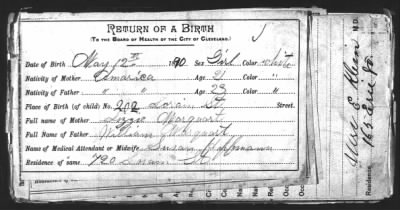 RETURN OF A BIRTH
(TO THE BOARD OF HEALTH OF THE CITY OF CLEVELAND.)
Date of Birth May 12th 1890 Sex Girl Color white
Nativity of Mother America Age 21 Color "
Nativity of Father " " Age 23 Color "
Place of Birth (of child) No. 202 Lorain St Street.
Full name of Mother Lizzie Marquart
Full name of Father William Marquart
Name of Medical Attendant or Midwife Susan Hoffmann
Residence of same 720 Lorain St
M.D.